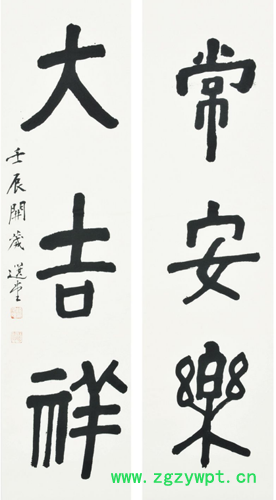 常安樂
大吉祥
壬辰開歲 選堂
www.zgzywpt.cn